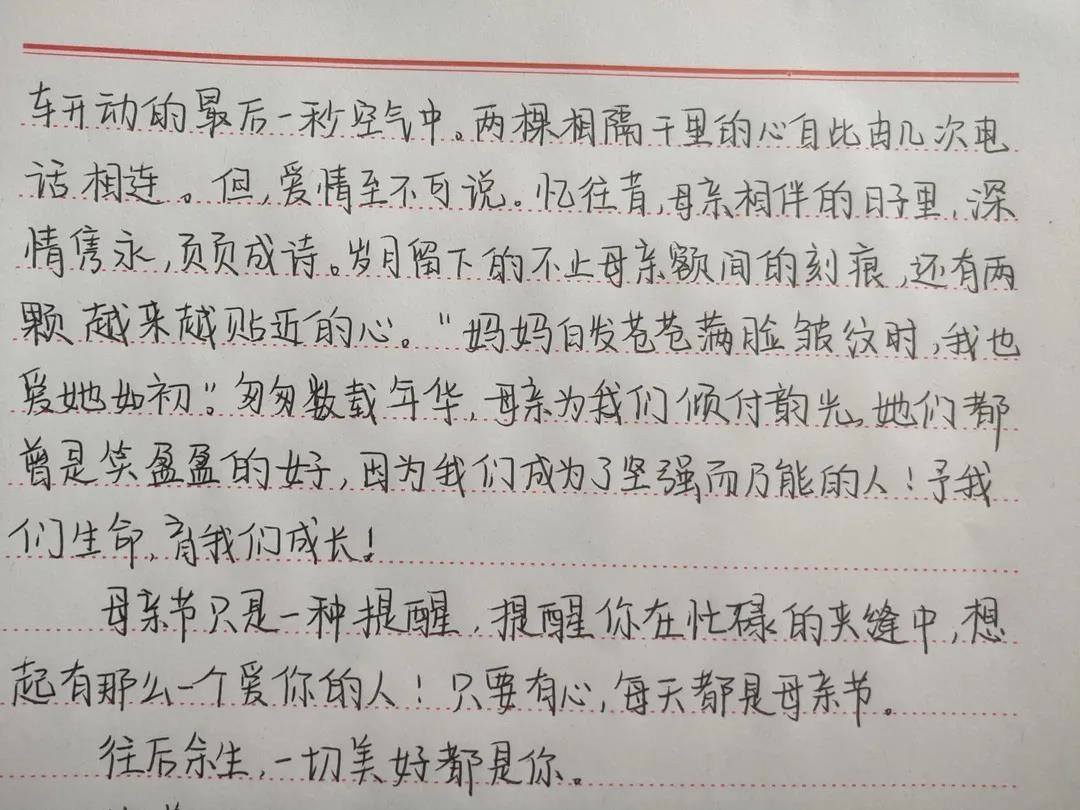 车开动的最后一秒空气中。两棵相隔千里的心自此由几次电
话相连。但,爱情至不可说。忆往昔,母亲相伴的日子里,深
情隽永,页页成诗。岁月留下的不止母亲额间的刻痕,还有两
颗越来越贴近的心。“妈妈白发苍苍满脸皱纹时,我也
爱她如初”。匆匆数载年华,母亲为我们倾付韵光。她们都
曾是笑盈盈的好,因为我们成为了坚强而乃能的人!予我
们生命,育我们成长!
母亲节只是一种提醒,提醒你在忙碌的夹缝中,想
起有那么一个爱你的人!只要有心,每天都是母亲节。
往后余生,一切美好都是你。